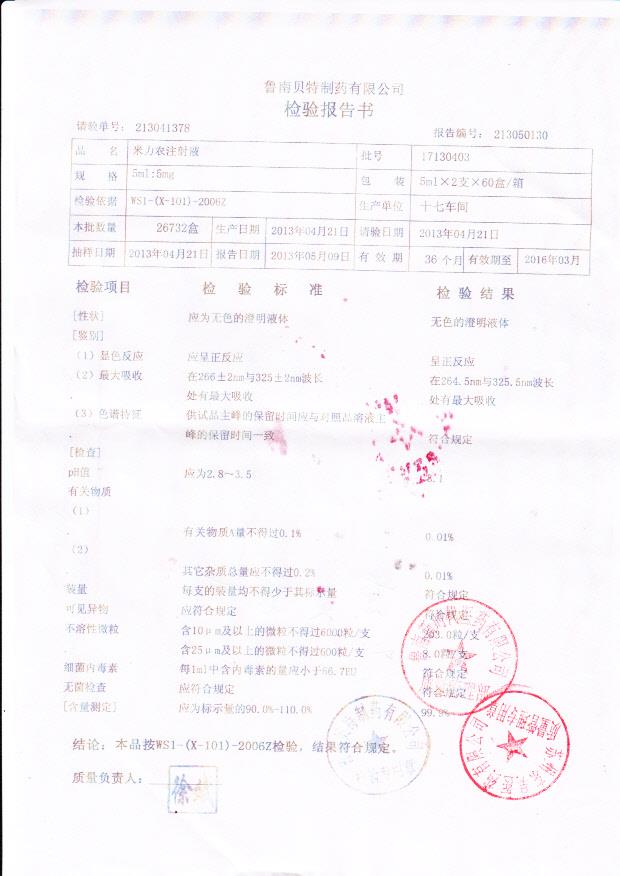 鲁南贝特制药有限公司
检验报告书
请验单号: 213041378 报告编号: 213050130
品 名 米力农注射液 批号 17130403
规 格 5ml:5mg 包 装 5ml×2支×60盒/箱
检验依据 WS1-(X-101)-2006Z 生产单位 十七车间
本批数量 26732盒 生产日期 2013年04月21日 请验日期 2013年04月21日
抽样日期 2013年04月21日 报告日期 2013年05月09日 有 效 期 36个月 有效期至 2016年03月
检验项目 检 验 标 准 检 验 结 果
[性状] 应为无色的澄明液体 无色的澄明液体
[鉴别]
(1)显色反应 应呈正反应 呈正反应
(2)最大吸收 在266±2nm与325±2nm波长 在264.5nm与325.5nm波长
处有最大吸收 处有最大吸收
(3)色谱特征 供试品主峰的保留时间应与对照品溶液主
峰的保留时间一致 符合规定
[检查]
pH值 应为2.8~3.5
有关物质
(1)
有关物质A量不得过0.1% 0.01%
(2)
其它杂质总量应不得过0.2% 0.01%
装量 每支的装量均不得少于其标示量 符合规定
可见异物 应符合规定 符合规定
不溶性微粒 含10μm及以上的微粒不得过6000粒/支 203.0粒/支
含25μm及以上的微粒不得过600粒/支 8.0粒/支
细菌内毒素 每1ml中含内毒素的量应小于66.7EU 符合规定
无菌检查 应符合规定 符合规定
[含量测定] 应为标示量的90.0%-110.0% 99.9%
结论: 本品按WS1-(X-101)-2006Z检验, 结果符合规定。
质量负责人:
徐
质量管理专用章